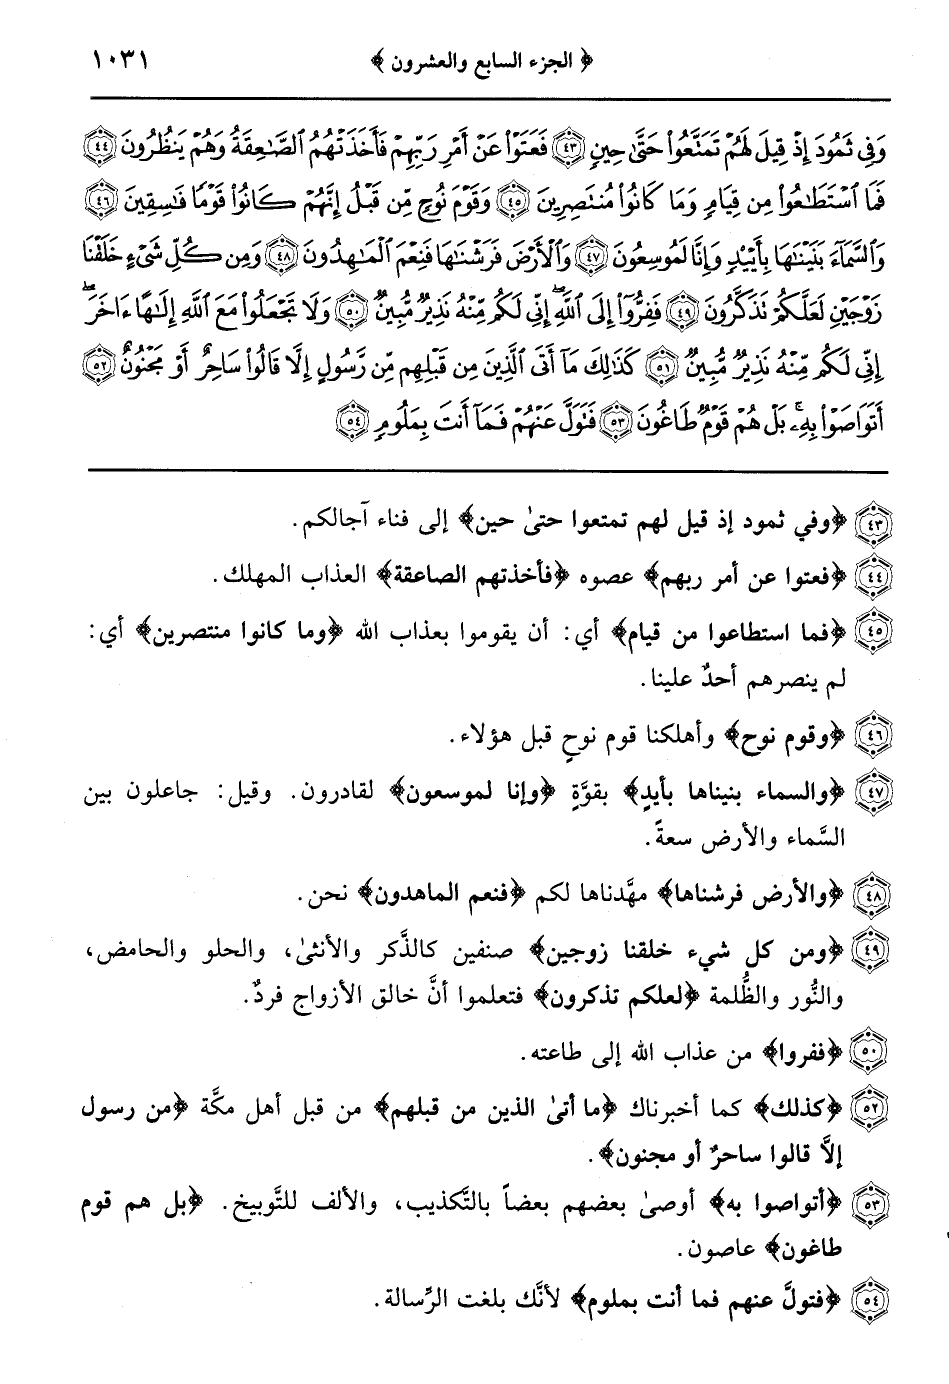 ﴿ الجزء السابع والعشرون ﴾ ١٠٣١
وَفِي ثَمُودَ إِذْ قِيلَ لَهُمْ تَمَتَّعُوا۟ حَتَّىٰ حِينٍ ٤٣ فَعَتَوْا۟ عَنْ أَمْرِ رَبِّهِمْ فَأَخَذَتْهُمُ ٱلصَّـٰعِقَةُ وَهُمْ يَنظُرُونَ ٤٤
فَمَا ٱسْتَطَـٰعُوا۟ مِن قِيَامٍ وَمَا كَانُوا۟ مُنتَصِرِينَ ٤٥ وَقَوْمَ نُوحٍ مِّن قَبْلُ إِنَّهُمْ كَانُوا۟ قَوْمًا فَـٰسِقِينَ ٤٦
وَٱلسَّمَآءَ بَنَيْنَـٰهَا بِأَيْي۟دٍ وَإِنَّا لَمُوسِعُونَ ٤٧ وَٱلْأَرْضَ فَرَشْنَـٰهَا فَنِعْمَ ٱلْمَـٰهِدُونَ ٤٨ وَمِن كُلِّ شَىْءٍ خَلَقْنَا
زَوْجَيْنِ لَعَلَّكُمْ تَذَكَّرُونَ ٤٩ فَفِرُّوٓا۟ إِلَى ٱللَّهِ ۖ إِنِّى لَكُم مِّنْهُ نَذِيرٌ مُّبِينٌ ٥٠ وَلَا تَجْعَلُوا۟ مَعَ ٱللَّهِ إِلَـٰهًا ءَاخَرَ ۖ
إِنِّى لَكُم مِّنْهُ نَذِيرٌ مُّبِينٌ ٥١ كَذَٰلِكَ مَآ أَتَى ٱلَّذِينَ مِن قَبْلِهِم مِّن رَّسُولٍ إِلَّا قَالُوا۟ سَاحِرٌ أَوْ مَجْنُونٌ ٥٢
أَتَوَاصَوْا۟ بِهِۦ ۚ بَلْ هُمْ قَوْمٌ طَاغُونَ ٥٣ فَتَوَلَّ عَنْهُمْ فَمَآ أَنتَ بِمَلُومٍ ٥٤
٤٣ ﴿وفي ثمود إذ قيل لهم تمتعوا حتىٰ حين﴾ إلى فناء آجالكم.
٤٤ ﴿فعتوا عن أمر ربهم﴾ عصوه ﴿فأخذتهم الصاعقة﴾ العذاب المهلك.
٤٥ ﴿فما استطاعوا من قيام﴾ أي: أن يقوموا بعذاب الله ﴿وما كانوا منتصرين﴾ أي:
لم ينصرهم أحدٌ علينا.
٤٦ ﴿وقوم نوح﴾ وأهلكنا قوم نوحٍ قبل هؤلاء.
٤٧ ﴿والسماء بنيناها بأيدٍ﴾ بقوَّةٍ ﴿وإنا لموسعون﴾ لقادرون. وقيل: جاعلون بين
السَّماء والأرض سعةً.
٤٨ ﴿والأرض فرشناها﴾ مهَّدناها لكم ﴿فنعم الماهدون﴾ نحن.
٤٩ ﴿ومن كل شيء خلقنا زوجين﴾ صنفين كالذَّكر والأنثىٰ، والحلو والحامض،
والنُّور والظُّلمة ﴿لعلكم تذكرون﴾ فتعلموا أنَّ خالق الأزواج فردٌ.
٥٠ ﴿ففروا﴾ من عذاب الله إلى طاعته.
٥٢ ﴿كذلك﴾ كما أخبرناك ﴿ما أتىٰ الذين من قبلهم﴾ من قبل أهل مكَّة ﴿من رسول
إلَّا قالوا ساحرٌ أو مجنون﴾.
٥٣ ﴿أتواصوا به﴾ أوصىٰ بعضهم بعضاً بالتَّكذيب، والألف للتَّوبيخ. ﴿بل هم قوم
طاغون﴾ عاصون.
٥٤ ﴿فتولَّ عنهم فما أنت بملوم﴾ لأنَّك بلغت الرِّسالة.